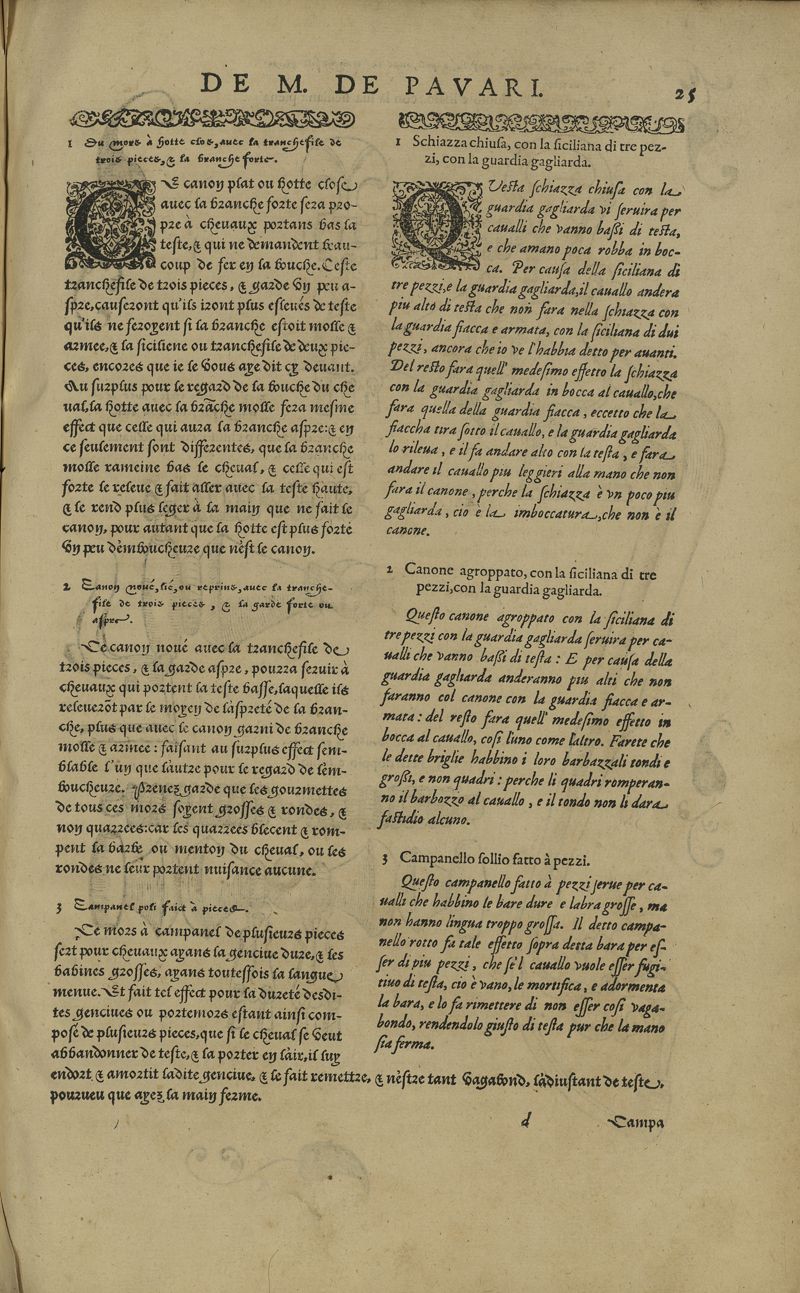 DE M. DE PAVARI.
25
1 Du mors à hotte clos, avec la tranchefile de
trois pieces, & la branche forte.
CE canon plat ou hotte close
avec la branche forte sera pro-
pre à chevaux portans bas la
teste, & qui ne demandent beau-
coup de fer en la bouche. Ceste
tranchefile de trois pieces, & garde un peu a-
spre, causeront qu'ils iront plus eslevés de teste
qu'ils ne feroyent si la branche estoit molle &
armee, & la siciliene ou tranchefile de deux pie-
ces, encores que ie le vous aye dit cy devant.
Au surplus pour le regard de la bouche du che
ual, la hotte avec la brãche molle fera mesme
effect que celle qui aura la branche aspre: & en
ce seulement sont differentes, que la branche
molle rameine bas le cheval, & celle qui est
forte le releue & fait aller avec la teste haute,
& le rend plus leger à la main que ne fait le
canon, pour autant que la hotte est plus forte
un peu d'emboucheure que n'est le canon.
2 Canon noué, lié, ou reprins, avec la tranche-
file de trois pieces, & la garde forte ou
aspre.
Ce canon noué avec la tranchefile de
trois pieces, & la garde aspre, pourra servir à
chevaux qui portent la teste basse, laquelle ils
releverõt par le moyen de l'aspreté de la bran-
che, plus que avec le canon garni de branche
molle & armee: faisant au surplus effect sem-
blable l'un que l'autre pour le regard de l'em-
boucheure. Prenez garde que les gourmettes
de tous ces mors soyent grosses & rondes, &
non quarrees: car les quarrees blecent & rom-
pent la barbe ou menton du cheval, ou les
rondes ne leur portent nuisance aucune.
3 Campanel poli faict à pieces.
Ce mors à campanel de plusieurs pieces
sert pour chevaux ayans la genciue dure, & les
babines grosses, ayans toutesfois la langue
menue. Et fait tel effect pour la dureté desdi-
tes genciues ou portemors estant ainsi com-
posé de plusieurs pieces, que si le cheval se veut
abbandonner de teste, & la porter en l'air, il luy
endort & amortit ladite genciue, & le fait remettre, & n'estre tant vagabond, l'adiustant de teste,
pourueu que ayez la main ferme.
1 Schiazza chiusa, con la siciliana di tre pez-
zi, con la guardia gagliarda.
QVesta schiazza chiusa con la
guardia gagliarda vi seruira per
caualli che vanno baßi di testa,
e che amano poca robba in boc-
ca. Per causa della siciliana di
tre pezzi, e la guardia gagliarda, il cauallo andera
piu alto di testa che non fara nella schiazza con
la guardia fiacca e armata, con la siciliana di dui
pezzi, ancora che io ve l'habbia detto per auanti.
Del resto fara quell' medesimo effetto la schiazza
con la guardia gagliarda in bocca al cauallo, che
fara quella della guardia fiacca, eccetto che la
fiaccha tira sotto il cauallo, e la guardia gagliarda
lo rileua, e il fa andare alto con la testa, e fara
andare il cauallo piu leggieri alla mano che non
fara il canone, perche la schiazza è vn poco piu
gagliarda, cio è la imboccatura, che non è il
canone.
2 Canone agroppato, con la siciliana di tre
pezzi, con la guardia gagliarda.
Questo canone agroppato con la siciliana di
tre pezzi con la guardia gagliarda seruira per ca-
ualli che vanno baßi di testa: E per causa della
guardia gagliarda anderanno piu alti che non
faranno col canone con la guardia fiacca e ar-
mata: del resto fara quell' medesimo effetto in
bocca al cauallo, cosi l'uno come l'altro. Farete che
le dette briglie habbino i loro barbazzali tondi e
großi, e non quadri: perche li quadri romperan-
no il barbozzo al cauallo, e il tondo non li dara
fastidio alcuno.
3 Campanello sollio fatto à pezzi.
Questo campanello fatto à pezzi serue per ca-
ualli che habbino le bare dure e labra grosse, ma
non hanno lingua troppo grossa. Il detto campa-
nello rotto fa tale effetto sopra detta bara per es-
ser di piu pezzi, che se'l cauallo vuole esser fugi-
tiuo di testa, cio è vano, le mortifica, e adormenta
la bara, e lo fa rimettere di non esser cosi vaga-
bondo, rendendolo giusto di testa pur che la mano
sia ferma.
d
Campa